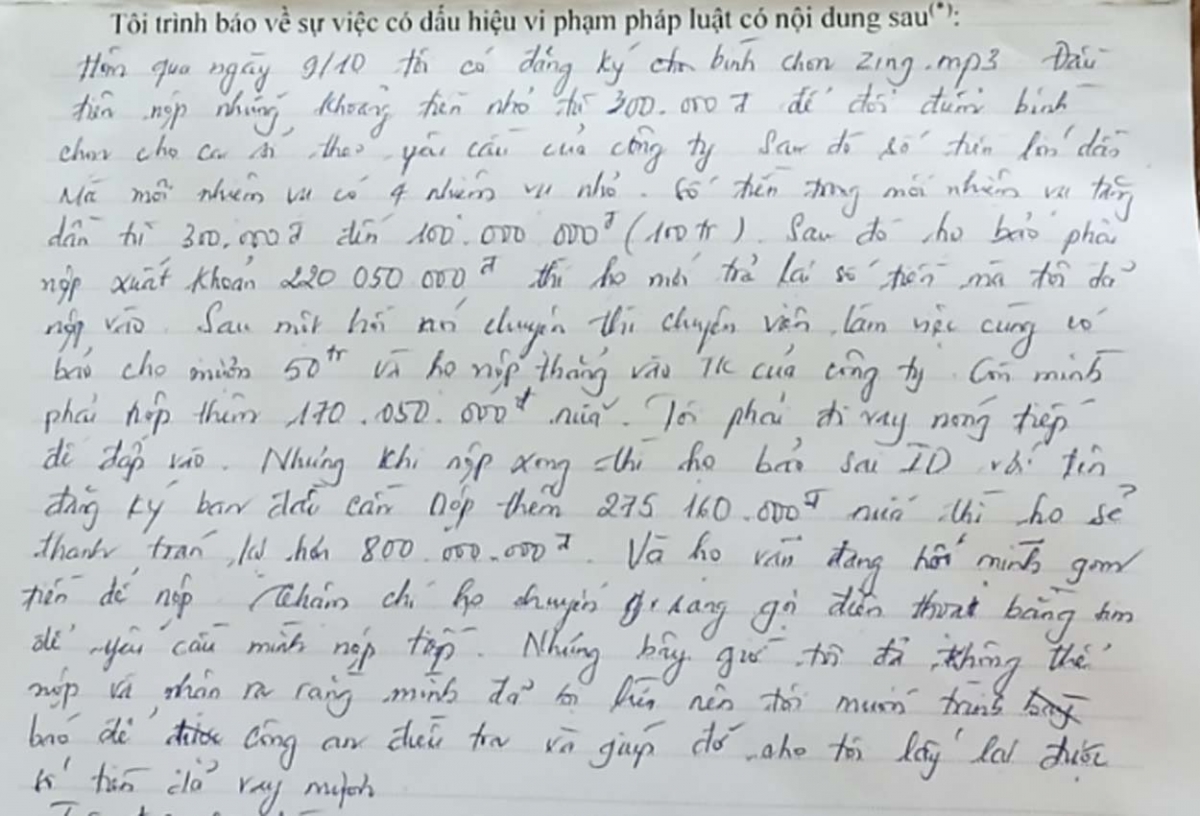 Tôi trình báo về sự việc có dấu hiệu vi phạm pháp luật có nội dung sau(*):
Hôm qua ngày 9/10 tôi có đăng ký bình chọn Zing.mp3 Đầu
tiên nộp những khoảng tiền nhỏ từ 300.000đ để đổi điểm bình
chọn cho ca sĩ, theo yêu cầu của công ty Sau đó số tiền lớn dần
Mà mỗi nhiệm vụ có 4 nhiệm vụ nhỏ. Số tiền trong mỗi nhiệm vụ tăng
dần từ 300.000đ đến 100.000 000đ (100tr). Sau đó họ bảo phải
nộp xuất khoản 220 050 000đ thì họ mới trả lại số tiền mà tôi đã
nộp vào. Sau một hồi nói chuyện thì chuyên viên làm việc cùng có
báo cho mượn 50tr và họ nộp thẳng vào TK của công ty. Còn mình
phải nộp thêm 170.050.000đ nữa. Tôi phải đi vay nóng tiếp
để đắp vào. Nhưng khi nộp xong thì họ bảo sai ID với tên
đăng ký ban đầu cần nộp thêm 275 160.000đ nữa thì họ sẽ
thanh toán lại hơn 800.000.000đ. Và họ vẫn đang hối mình gom
tiền để nộp. Thậm chí họ chuyển sang gọi điện thoại bằng
để yêu cầu mình nộp tiếp. Nhưng bây giờ tôi đã không thể
nộp và nhận ra rằng mình đã bị lừa nên tôi muốn trình
báo để công an điều tra và giúp đỡ cho tôi lấy lại được
số tiền đã vay mượn